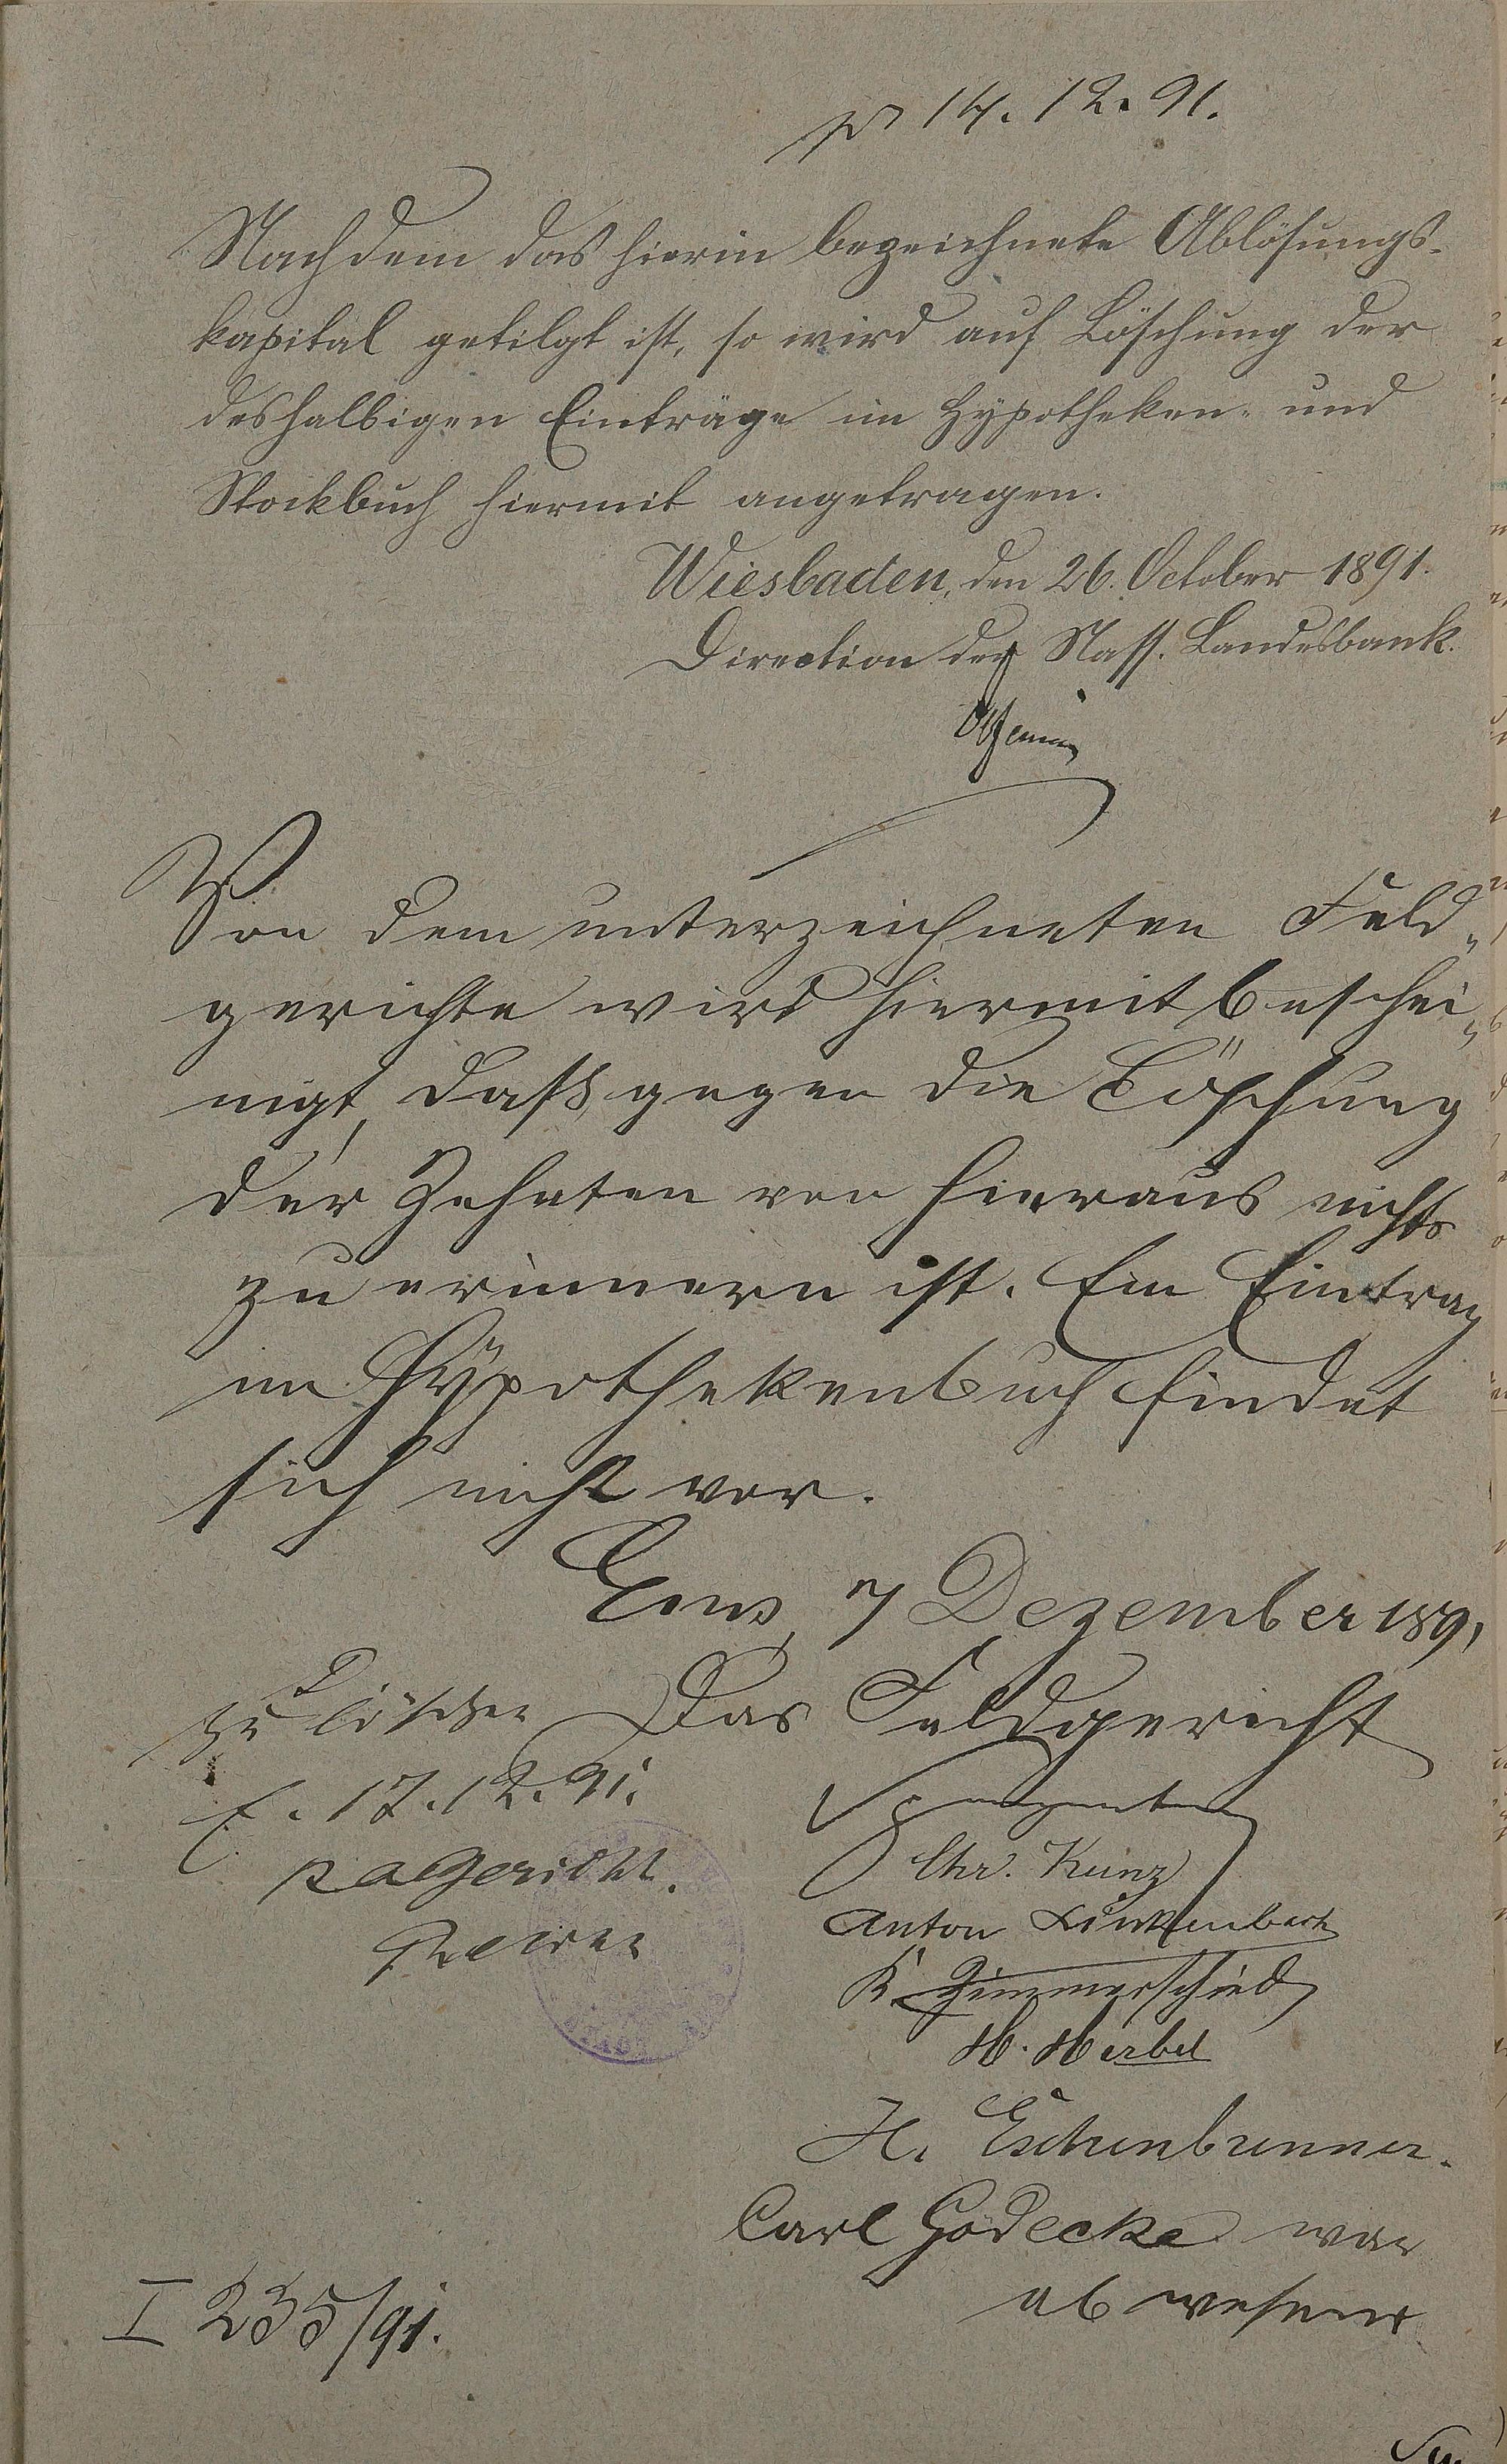 14. 12. 91.
Nachdem das hierin bezeichnete Ablösungs-
kapital getilgt ist, so wird auf Löschung der
deshalbigen Einträge im Hypotheken- und
Stockbuch hiermit angetragen.
Wiesbaden, den 26. October 1891.
Direction der Nass. Landesbank.
Von dem unterzeichneten Feld„
gerichte wird hiermit beschei„
nigt, daß gegen die Löschung
der Zehnten von hieraus nichts
zu erinnern ist. Ein Eintrag
im Hypothekenbuch findet
sich nicht vor.
Ems, 7 Dezember 1891
Das Feldgericht
zu löschen
E. 17. 12. 91.
Chr. Kunz
Anton Linkenbach
K. Zimmerschied
H. Herbel
H. Eschenbrenner.
Carl Gödecke war
abwesend
I 235/91.